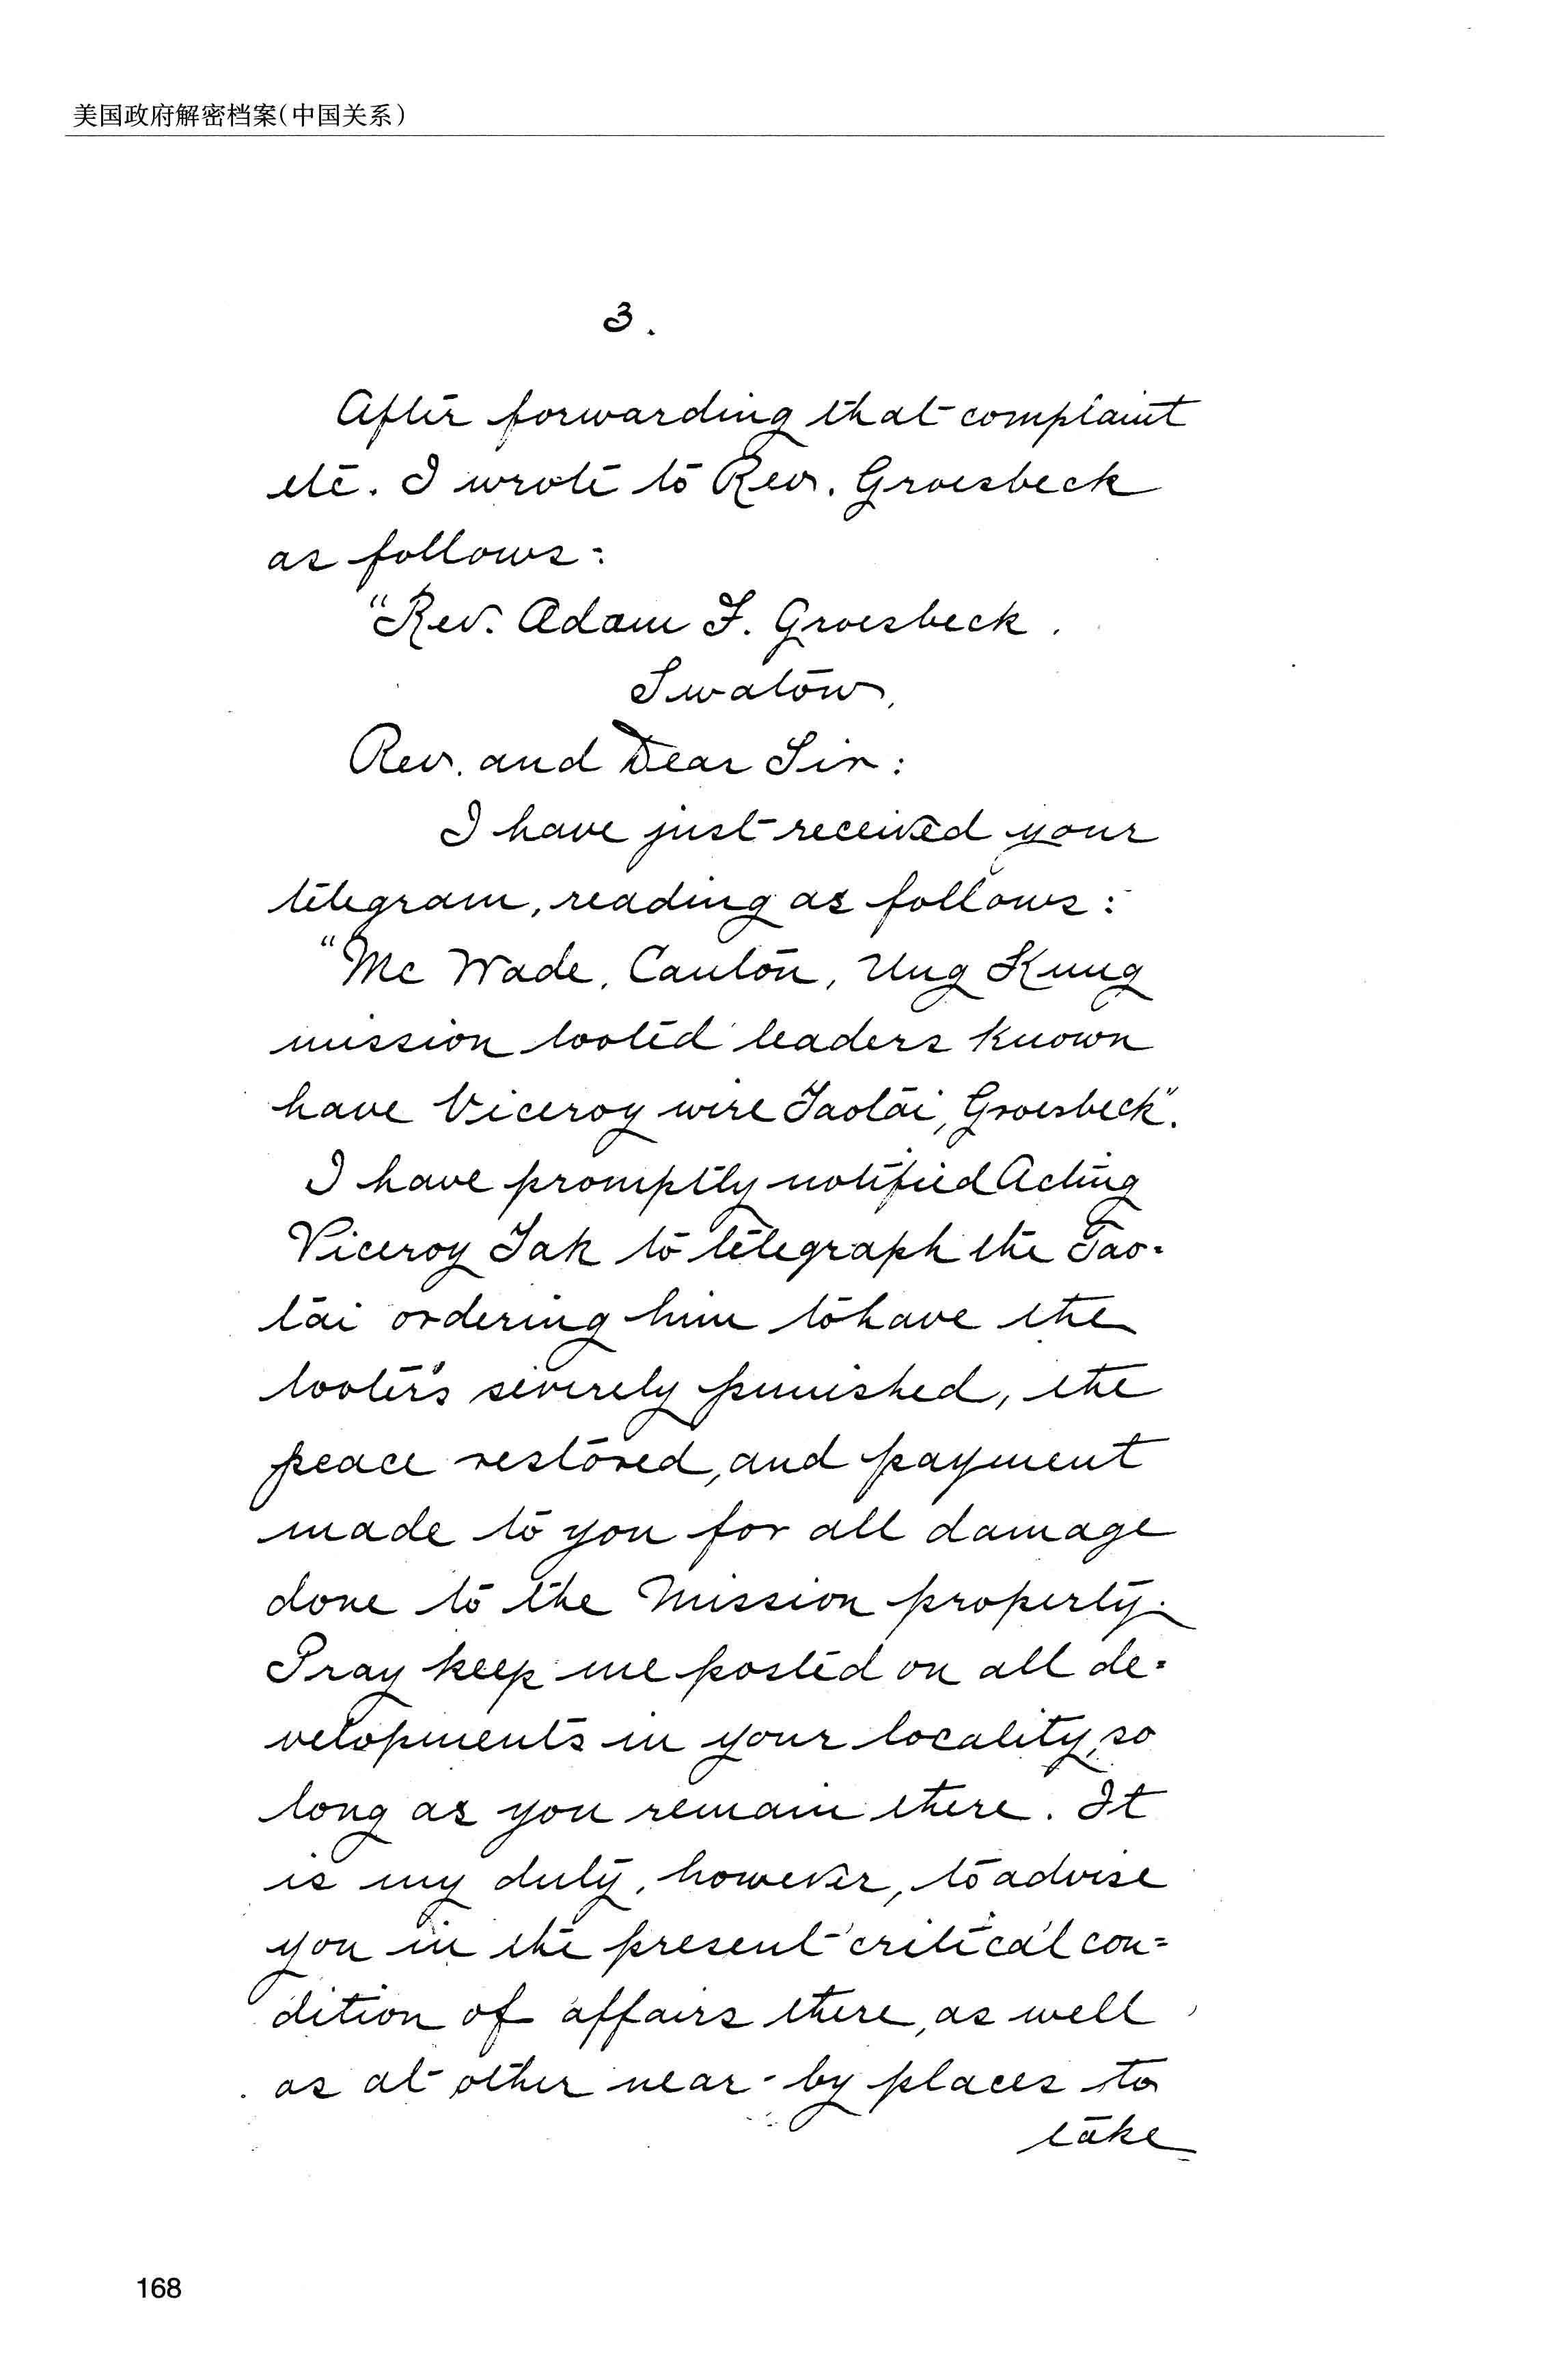 美国政府解密档案(中国关系)
3.
After forwarding that complaint
etc. I wrote to Rev. Groesbeck
as follows:
"Rev. Adam F. Groesbeck.
Swatow,
Rev. and Dear Sir:
I have just received your
telegram, reading as follows:
"Mc Wade, Canton, Ung Kung
mission looted leaders known
have Viceroy wire Taotai, Groesbeck".
I have promptly notified Acting
Viceroy Tak to telegraph the Tao=
tai ordering him to have the
looters severely punished, the
peace restored, and payment
made to you for all damage
done to the Mission property.
Pray keep me posted on all de=
velopments in your locality, so
long as you remain there. It
is my duty, however, to advise
you in the present critical con=
dition of affairs there, as well
as at other near-by places to
take
168